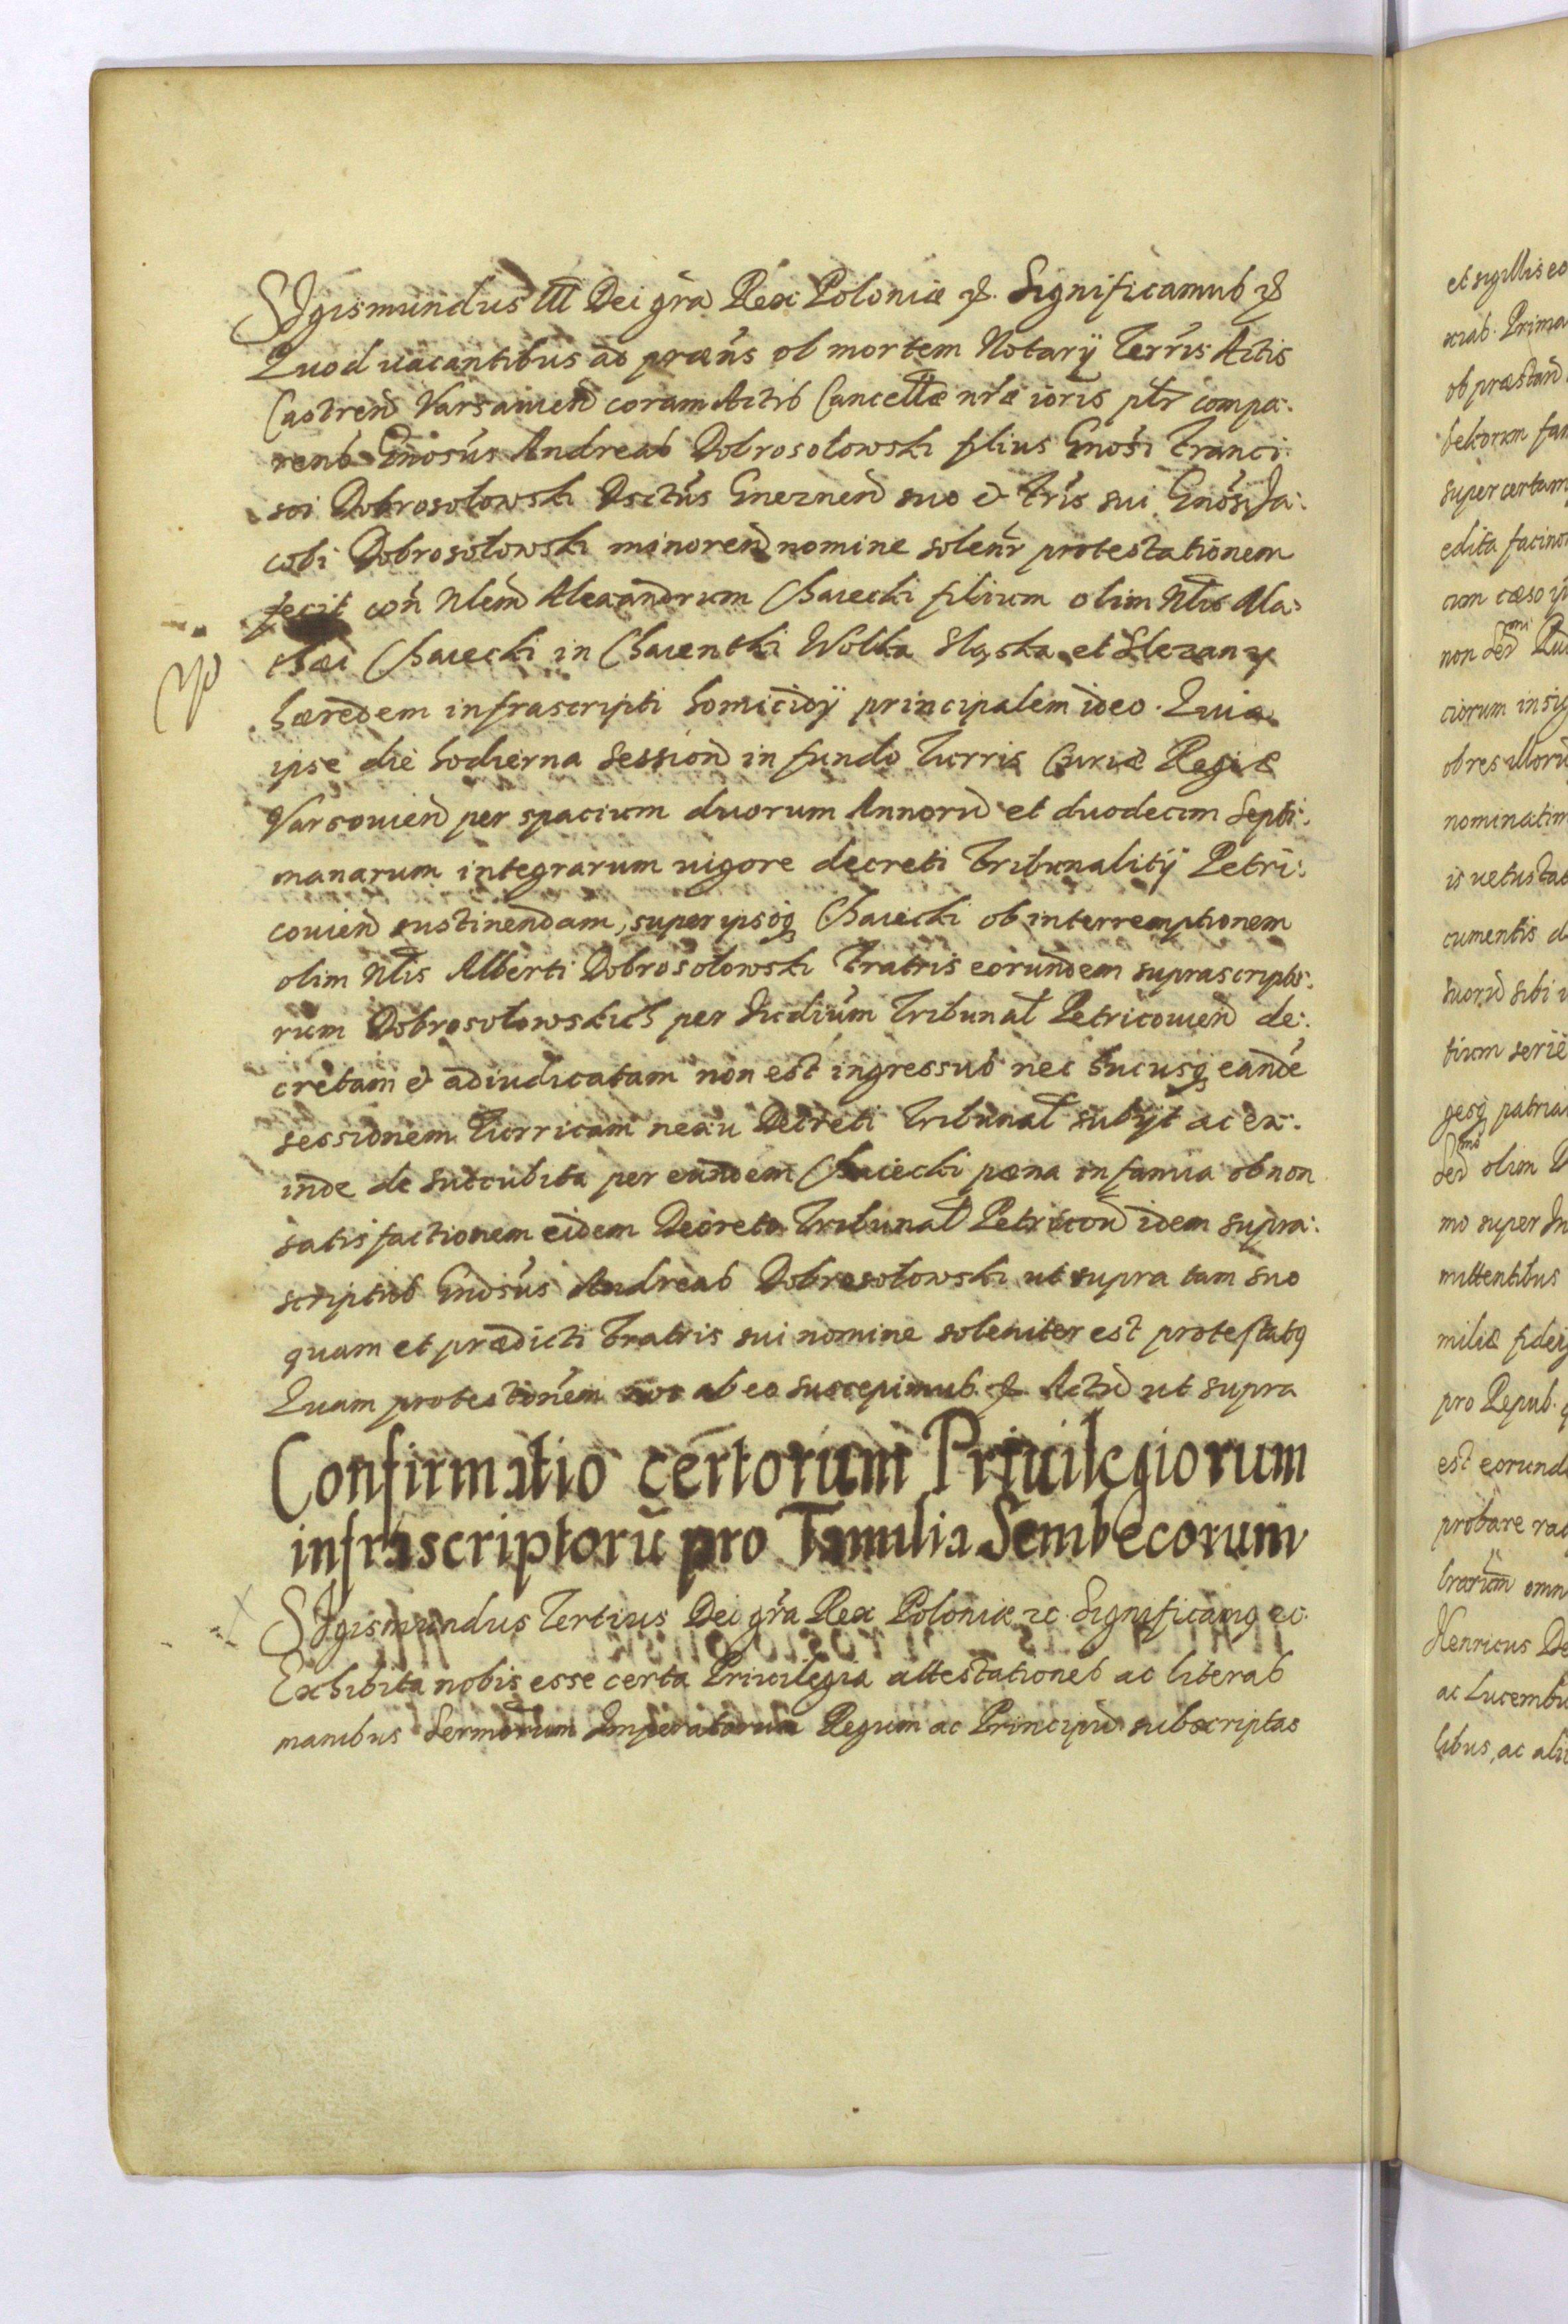 SJgismundus III Dei gra͞ Rex Poloniæ &. Significamus &
Quod uacantibus ad præn̄s ob mortem Notarÿ Terrīs Actis
Castren̄ Varsauien̄ coram Actis Cancellæ nr̄æ ioris pl̄r compa:
rens Gn̄osus Andreas Dobrosołowski filius Gn̄osi Franci
sci Dobrosołowski Gneznen̄ suo & fr̄is sui Gn̄osi Ja:
cobi Dobrosołowski minoren̄ nomine solen̄r protestationem
fecit con̄ Nlem̄ Alexandrum Chaiecki filium olim Nl̄is Ma:
thæi Chaiecki in Chaientki Wolka Sląska et Slezany
hæredem infrascripti homicidÿ principalem ideo. Quia
ipse die hodierna session̄ in fundo Turris Curiæ Regiæ
Varsouien̄ per spacium duorum Annorū et duodecim Septi:
manarum integrarum uigore decreti Tribunalitÿ Petri:
couien̄ sustinendam, super ipsoq Chaiecki ob interremptionem
olim Nl̄is Alberti Dobrosołowski Fratris eorundem suprascripto:
rum Dobrosołowskich per Iudiu͞m Tribunal̄ Petricouien̄ de:
cretam & adiudicatam non est ingressus nec hucusq eandē
sessionem Turricam nexu Decreti Tribunal̄ subÿt ac ex:
inde de succubita per eundem Chaiecki pæna infamiæ ob non
satisfactionem eidem Decreto Tribunal̄ Petricou̅ idem supra:
scriptus Gn̄osus Andreas Dobrosołowski ut supra tam suo
quam et prædicti Fratris sui nomine soleniter est protestatq
Quam protestōnem nos ab eo suscepimus & Actū ut supra
Confirmatio certorum Priuilegiorum
infrascriptorū pro Familia Sembecorum
SJgismundus Tertius Dei gr̄a Rex Poloniæ &c. Significamq &c.
Exhibita nobis esse certa Priuilegia attestationes ac literas
manibus Sermōrum Imperatorum Regum ac Principū subscriptas
et sigillis eo
Prima
ob præstan̄
super certam
edita facino
cum cæso
non Ser̄mi
ciorum insig
ob res illorū
nominatim
is uetustat
cumentis d
suorū sibi
tium serie
gesq patria
Ser̄mo olim
mo super In
mittentibus
miliæ fidei
pro Repub.
est eorund
probare
omn
Henricus De
ac Lucembu
libus, ac ali